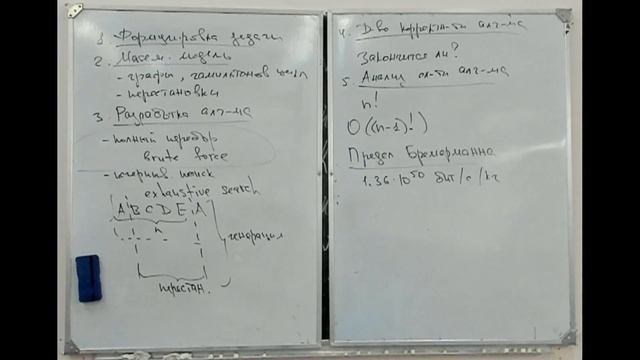 1. Формулировка задачи
2. Матем. модель
- графы, гамильтонов цикл
- перестановки
3. Разработка алг-ма
- полный перебор
brute force
- исчерпыв. поиск
exhaustive search
A B C D E A
n
генерация
перестан.
4. Д-во коррект-ти алг-ма
Закончится ли?
5. Анализ сл-ти алг-ма
n!
O((n-1)!)
Предел Бремерманна
1.36·10⁵⁰ бит/с/кг